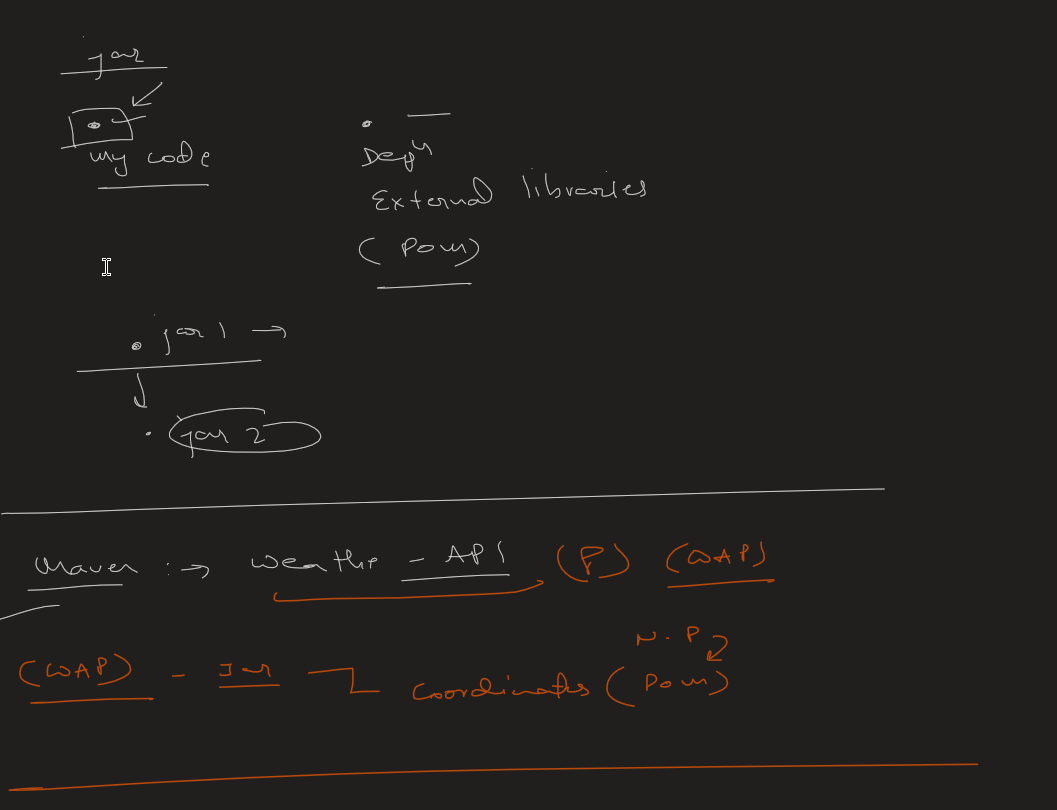 jar
my code
Depn
External libraries
(Pom)
jar 1 →
jar 2
Maven :→ weathe - API (P) (WAP)
N. P
(WAP) - Jar coordinates (Pom)